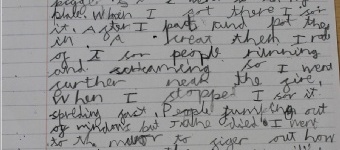 plan. When I got there I sor
it. After I paid and put they
in a creat then I rod
of I sor people running
and screaming so I went
further near the fire.
When I stopps I sor it
spreding fast. People jumping out
of windows but some died. I went
to the mor to figer out how